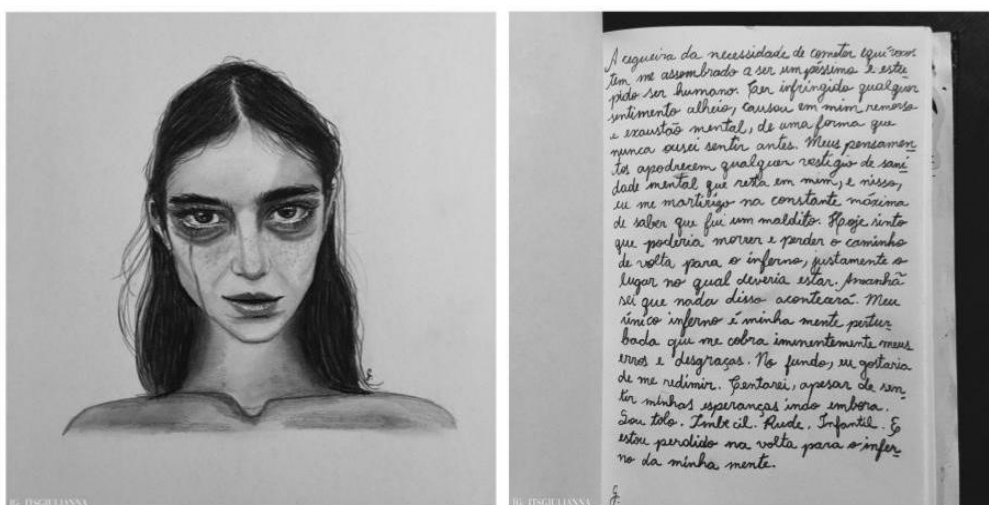 A cegueira da necessidade de cometer equívocos
tem me assombrado a ser um péssimo e estú
pido ser humano. Ter infringido qualquer
sentimento alheio, causou em mim remorso
e exaustão mental, de uma forma que
nunca ousei sentir antes. Meus pensamen
tos apodrecem qualquer vestígio de sani
dade mental que resta em mim, e nisso,
eu me martirizo na constante máxima
de saber que fui um maldito. Hoje sinto
que poderia morrer e perder o caminho
de volta para o inferno, justamente o
lugar no qual deveria estar. Amanhã
sei que nada disso acontecerá. Meu
único inferno é minha mente pertur
bada que me cobra iminentemente meus
erros e desgraças. No fundo, eu gostaria
de me redimir. Tentarei, apesar de sen
tir minhas esperanças indo embora.
Sou tolo. Imbecil. Rude. Infantil. E
estou perdido na volta para o infer
no da minha mente.
G.
IG: ITSGIULIANNA
IG: ITSGIULIANNA